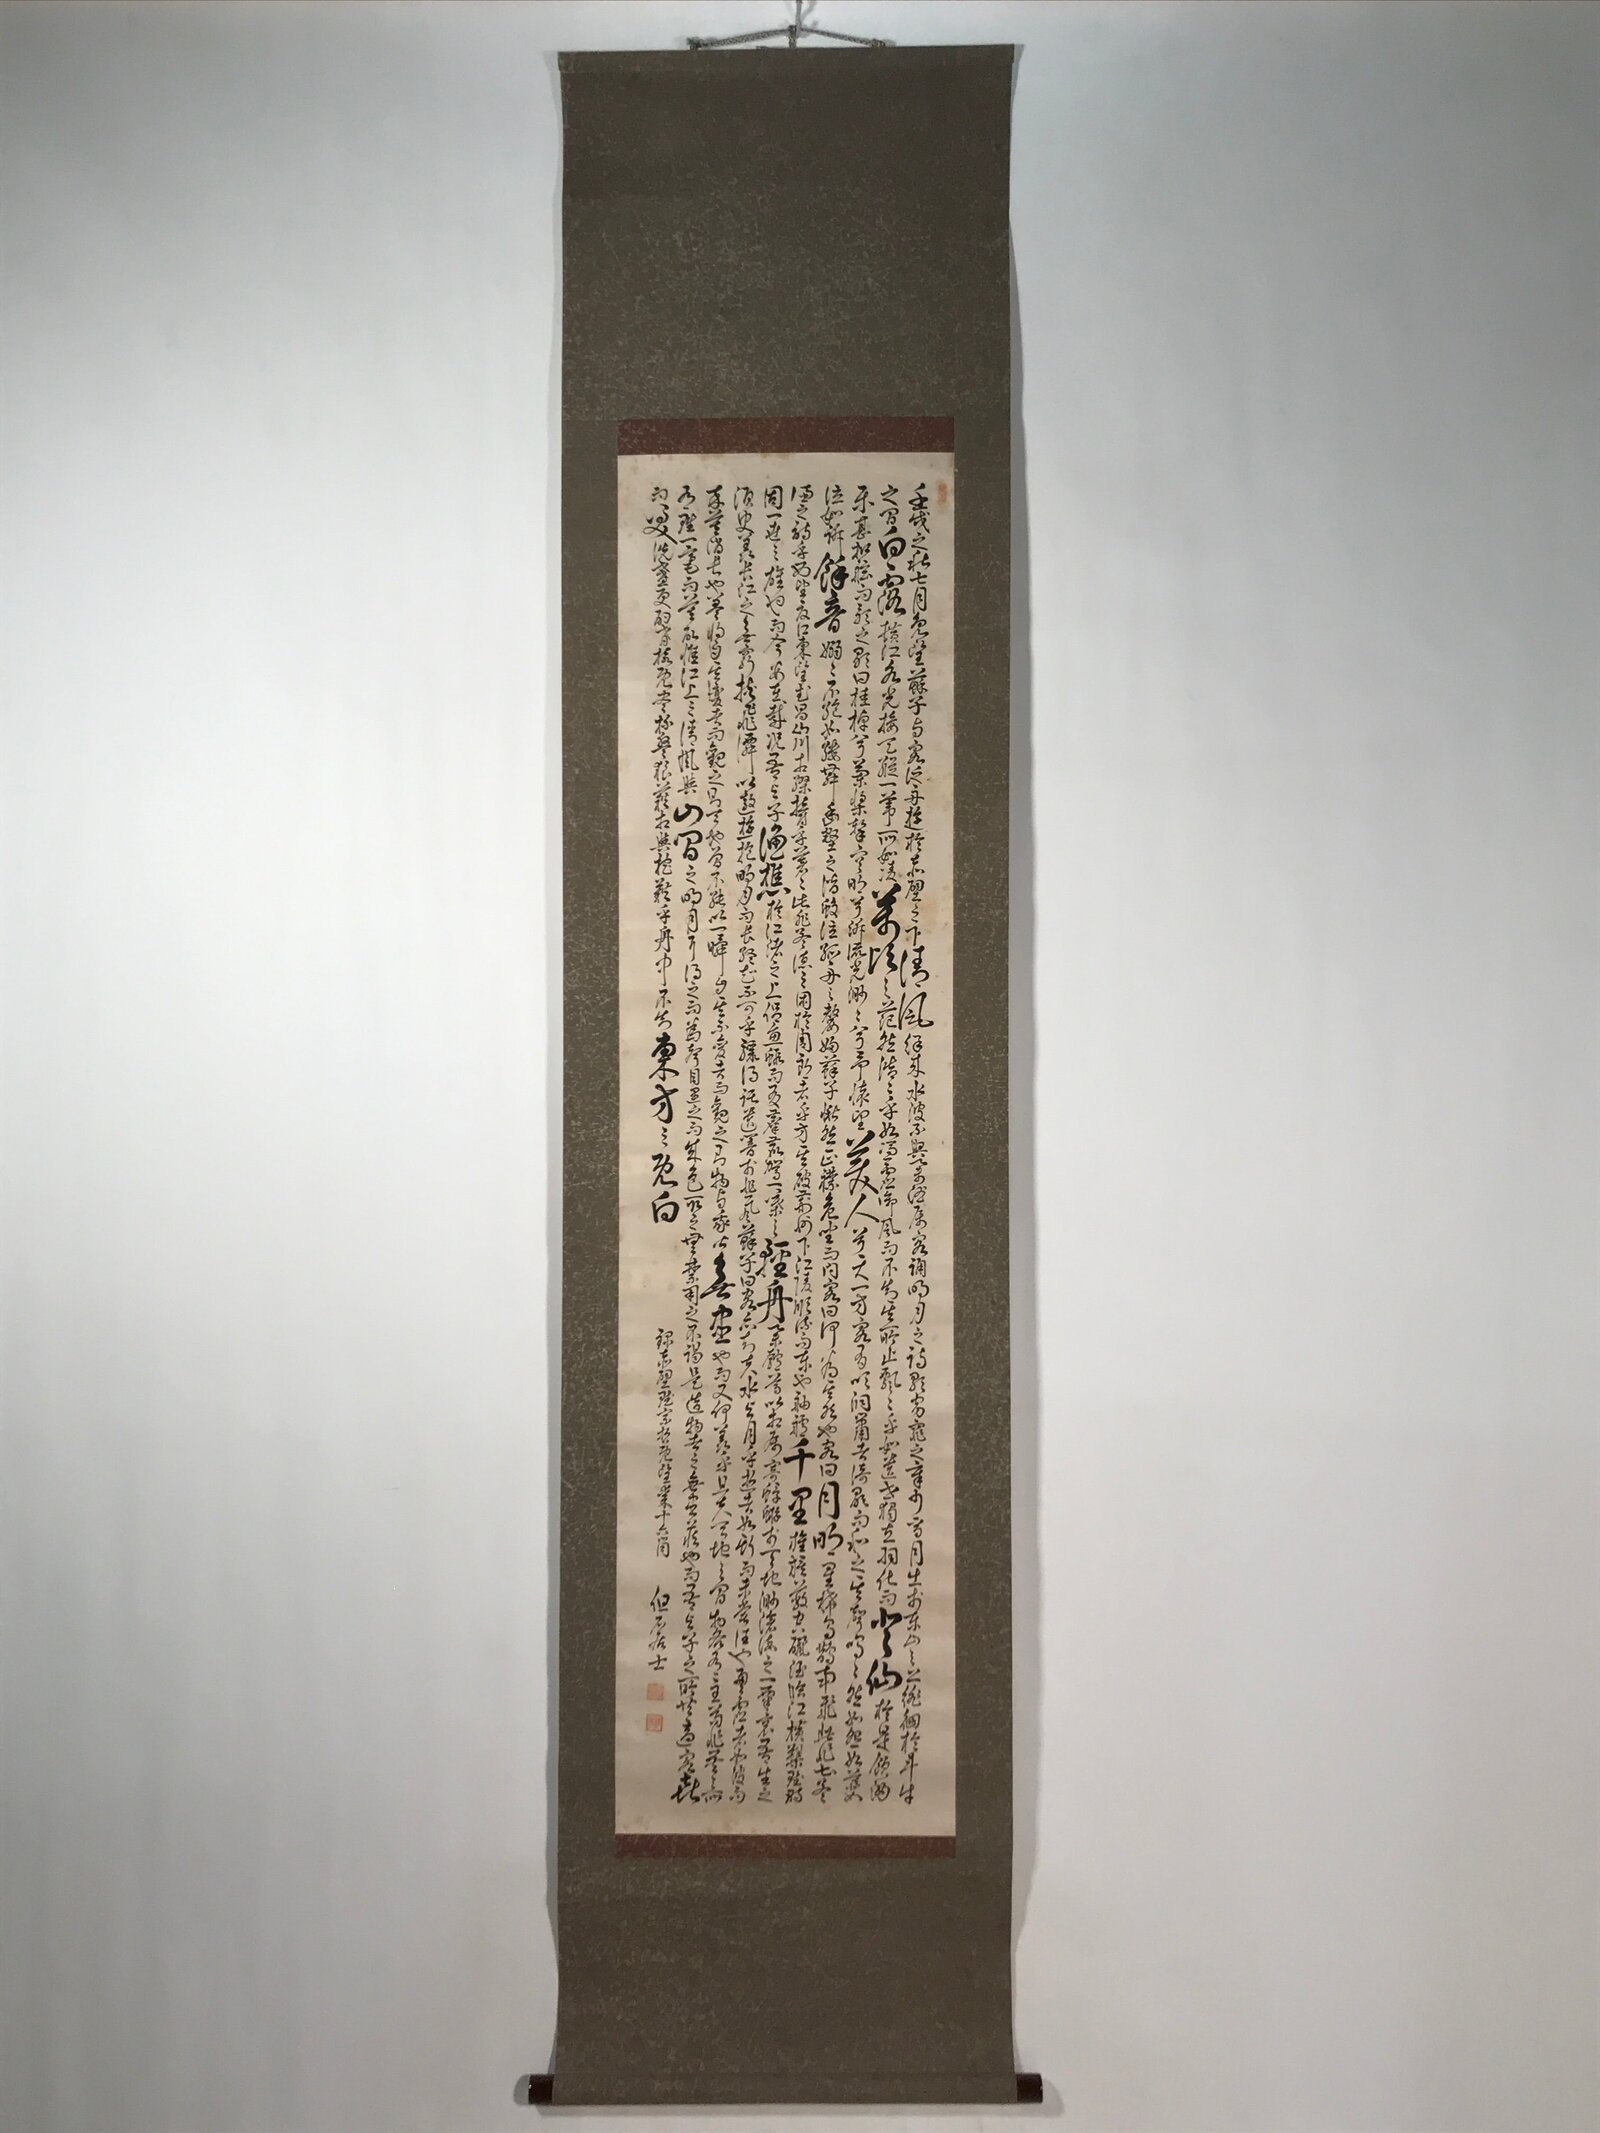 壬戌之秋七月既望蘇子与客泛舟遊於赤壁之下清風徐来水波不興挙酒属客誦明月之詩歌窈窕之章少焉月出於東山之上徘徊於斗牛
之間白露横江水光接天縦一葦所如凌萬頃之茫然浩々乎如馮虚御風而不知其所止飄々乎如遺世獨立羽化而登仙於是飲酒
樂甚扣舷而歌之歌曰桂棹兮蘭槳撃空明兮泝流光渺々兮予懐望美人兮天一方客有吹洞簫者倚歌而和之其聲嗚々然如怨如慕如
泣如訴餘音嫋々不絶如縷舞幽壑之潜蛟泣孤舟之嫠婦蘇子愀然正襟危坐而問客曰何為其然也客曰月明星稀烏鵲南飛此非曹孟
徳之詩乎西望夏口東望武昌山川相繆鬱乎蒼々此非孟徳之困於周郎者乎方其破荊州下江陵順流而東也舳艫千里旌旗蔽空釃酒臨江横槊賦詩
固一世之雄也而今安在哉況吾与子漁樵於江渚之上侶魚鰕而友麋鹿駕一葉之軽舟挙匏樽以相属寄蜉蝣於天地渺滄海之一粟哀吾生之
須臾羨長江之無窮挟飛僊以遨遊抱明月而長終知不可乎驟得託遺響於悲風蘇子曰客亦知夫水与月乎逝者如斯而未嘗往也盈虚者如彼而
卒莫消長也蓋将自其變者而観之則天地曽不能以一瞬自其不變者而観之則物与我皆無盡也而又何羨乎且夫天地之間物各有主苟非吾之所
有雖一毫而莫取惟江上之清風與山間之明月耳得之而為聲目遇之而成色取之無禁用之不竭是造物者之無尽蔵也而吾与子之所共適客喜
而笑洗盞更酌肴核既尽杯盤狼藉相與枕藉乎舟中不知東方之既白
録赤壁賦
居士